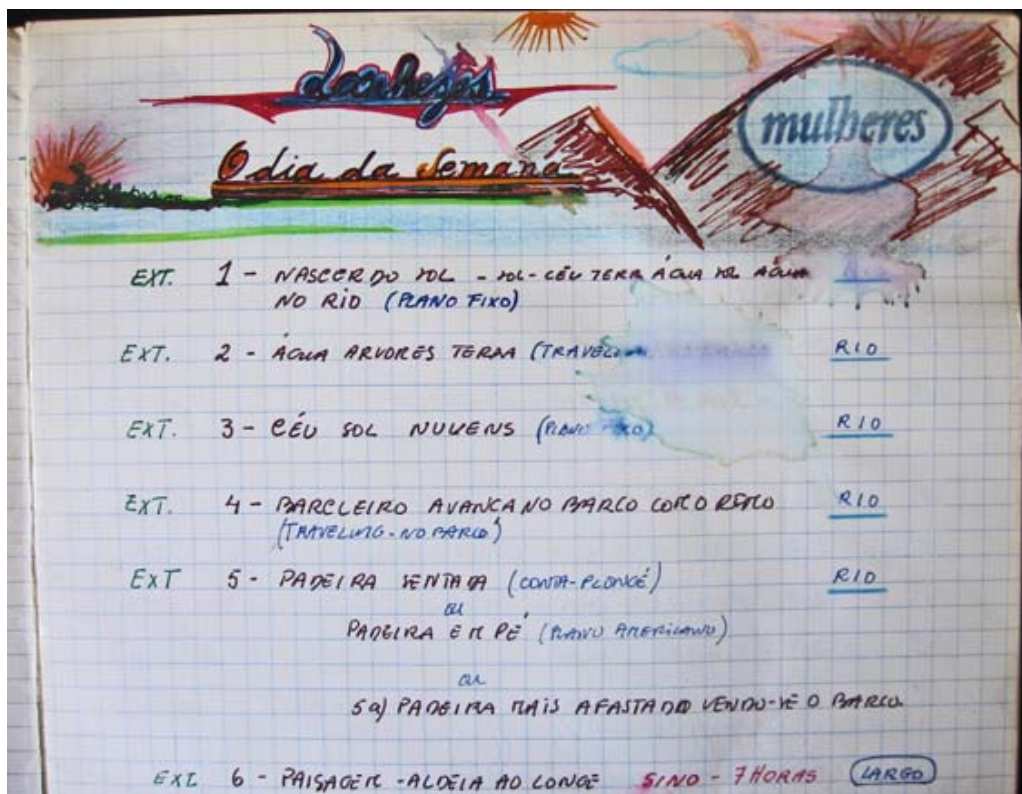 Lanheses
mulheres
O dia da Semana
EXT. 1 - NASCER DO SOL - SOL - CÉU TERRA ÁGUA SOL ÁGUA
NO RIO (PLANO FIXO)
EXT. 2 - ÁGUA ARVORES TERRA (TRAVELING RIO
EXT. 3 - CÉU SOL NUVENS (PLANO FIXO) RIO
EXT. 4 - BARCLEIRO AVANCA NO BARCO COM O REMO RIO
(TRAVELING - NO BARCO)
EXT 5 - PADEIRA SENTADA (CONTA-PLONGÉ) RIO
ou
PADEIRA EM PÉ (PLANO AMERICANO)
ou
5a) PADEIRA MAIS AFASTADA VENDO-SE O BARCO
EXT. 6 - PAISAGEM - ALDEIA AO LONGE SINO - 7 HORAS LARGO